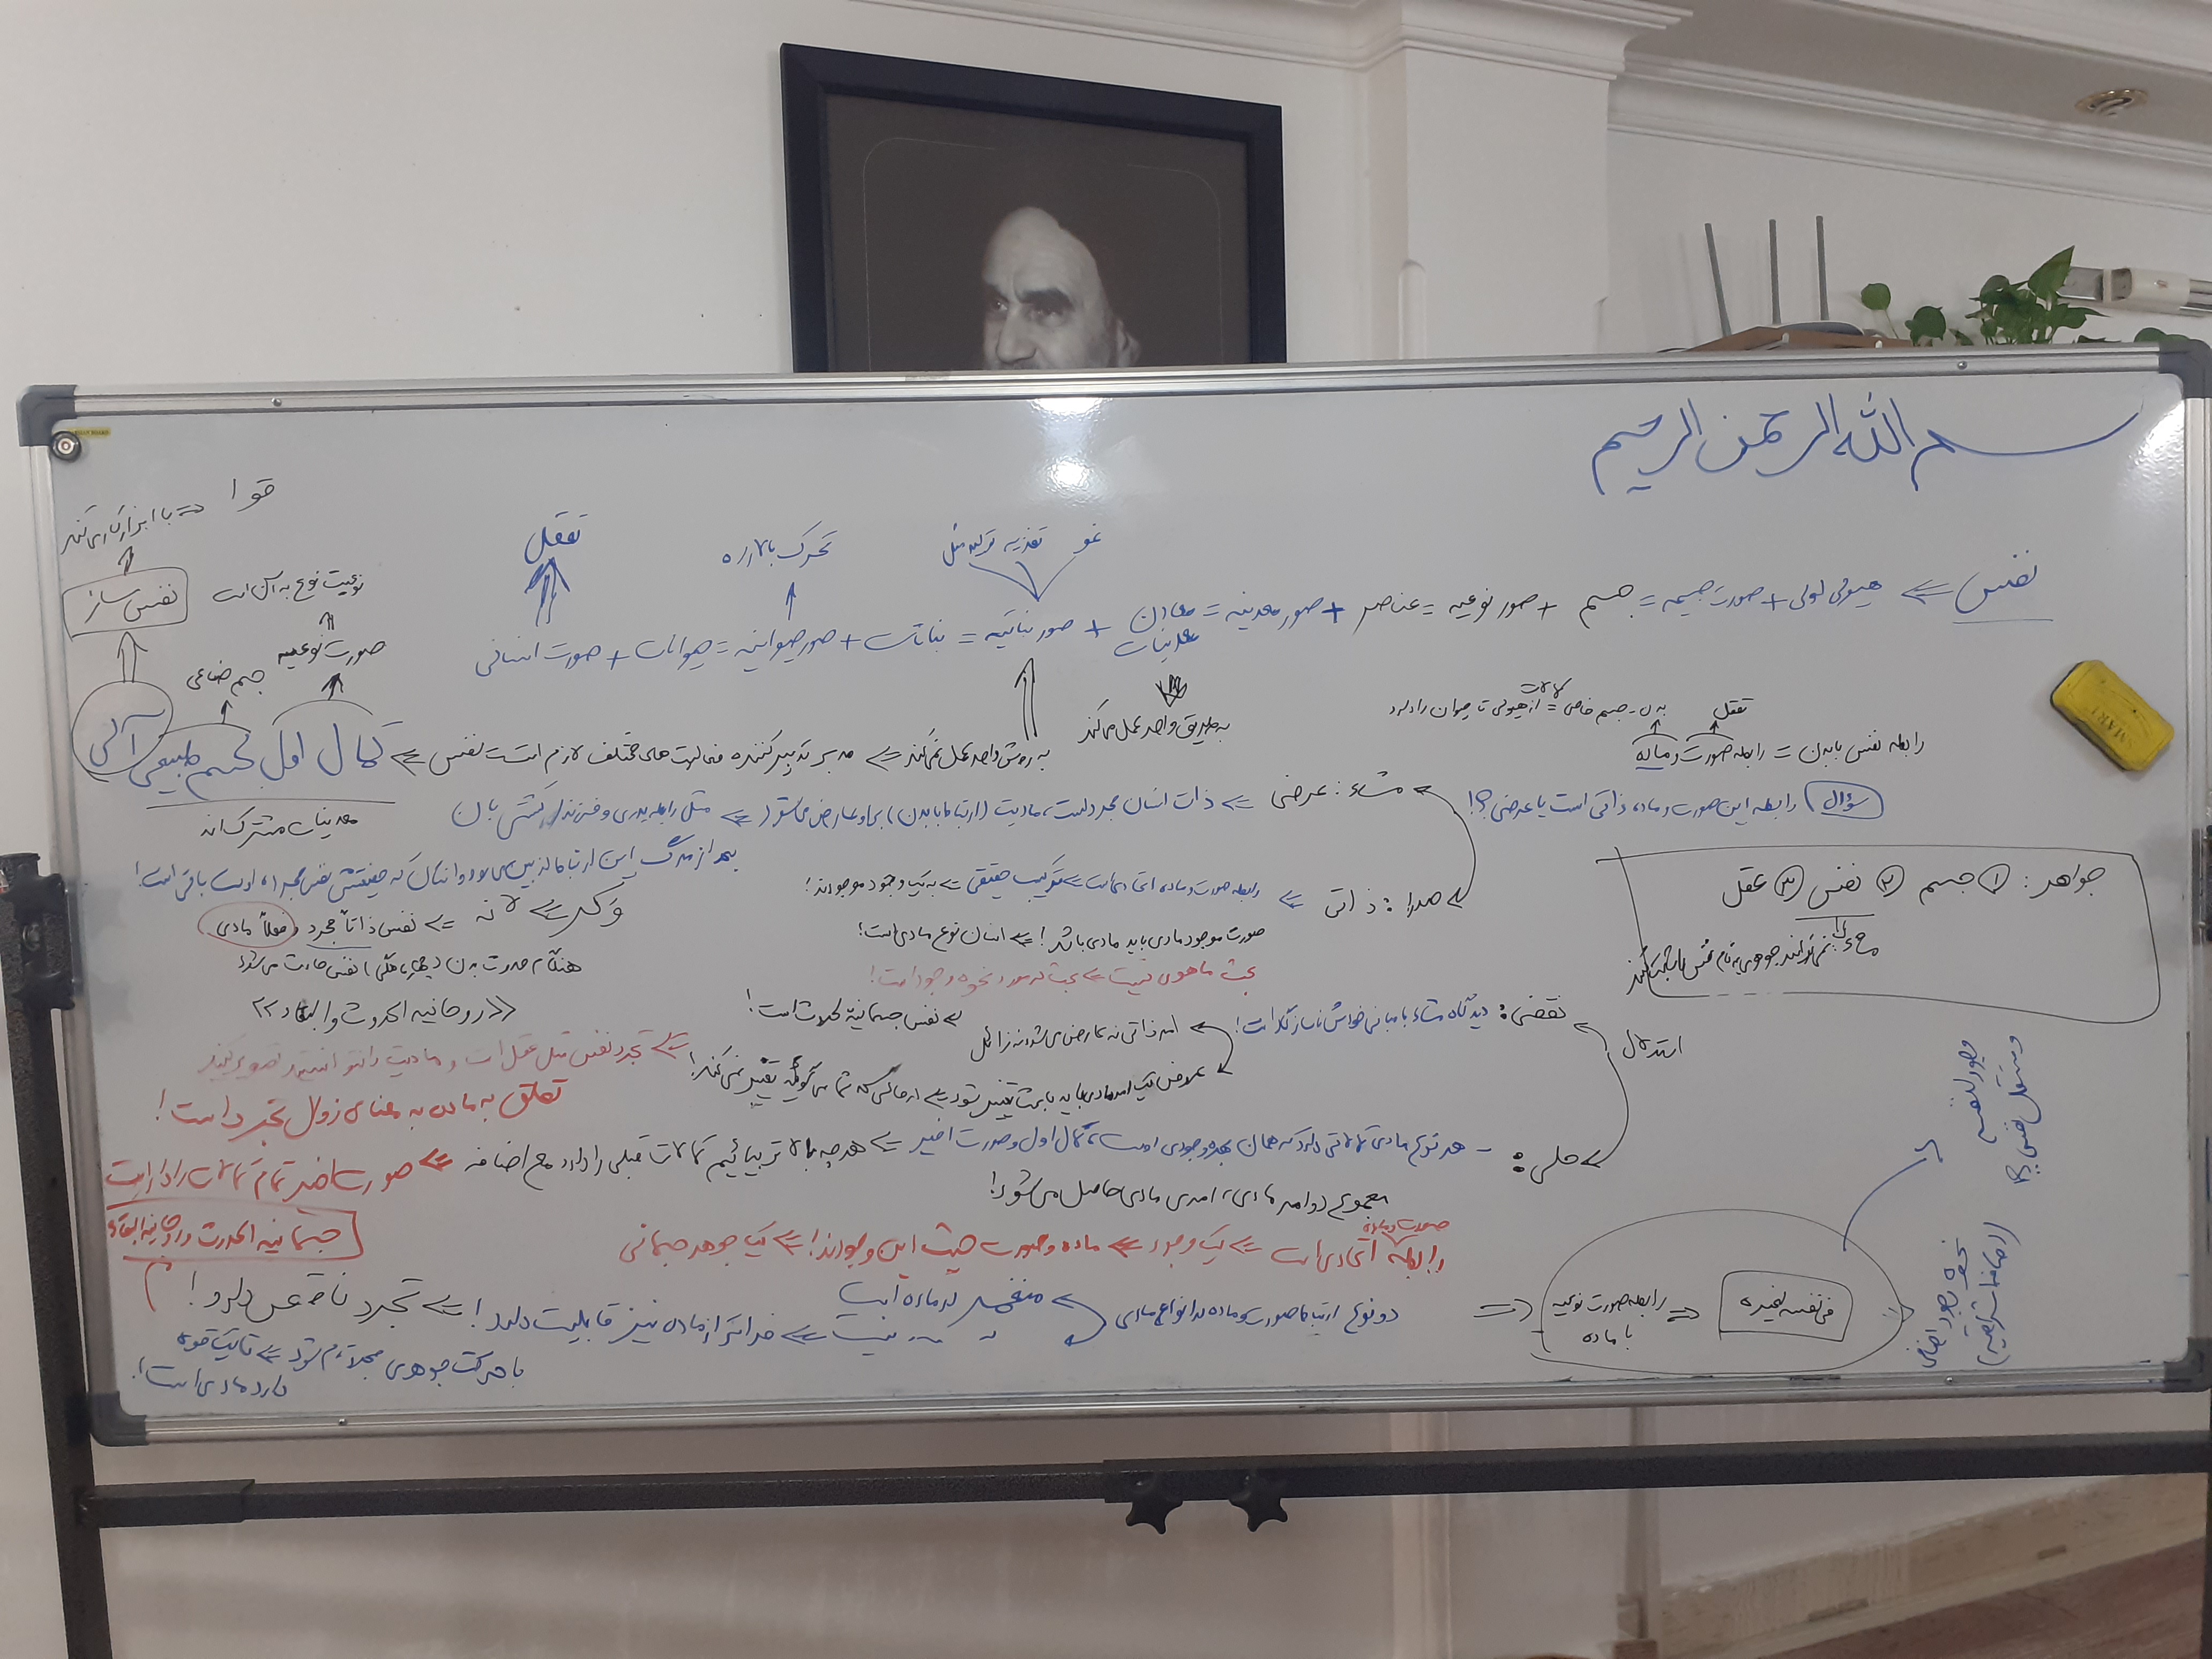 بسم الله الرحمن الرحیم
قوا ⇐ با ابزار کاری کند
نمو تغذیه تولید مثل
تحرک بالاراده
تعقل
نفس ⇐ هیولی اولی + صورت جسمیه = جسم + صور نوعیه = عناصر + صور معدنیه = معادن + صور نباتیه = نباتات + صور حیوانیه = حیوانات + صورت انسانی
معدنیات
نوعیت نوع به آن است
نفس ساز
صورت نوعیه
جسم صناعی
به طریق واحد عمل می‌کند
به روش واحد عمل نمی‌کند ⇐ مدبر تدبیر کننده فعالیت های مختلف لازم است نفس ⇐ کمال اول لجسم طبیعی آلی
معدنیات مشترک اند
تعقل
کمالات
بدن - جسم خاص = از هیولی تا حیوان را دارد
رابطه نفس با بدن = رابطه صورت و ماده
سؤال رابطه این صورت و ماده ذاتی است یا عرضی؟!
مشاء: عرضی ⇐ ذات انسان مجرد است، مادیت (ارتباط با بدن) برای او عارض می‌شود ⇐ مثل رابطه پدری و فرزند / کشتی بان
بعد از مرگ این ارتباط از بین می‌رود و انسان که حقیقتش نفس مجرد او است باقی است!
صدرا: ذاتی ⇐ رابطه صورت و ماده اتحادی است ⇐ ترکیب حقیقی ⇐ به یک وجود موجودند!
صورت موجود مادی باید مادی باشد! ⇐ انسان نوع مادی است!
بحث ماهوی نیست ⇐ بحث در مورد نحوه وجود است!
⇐ نه ⇐ نفس ذاتاً مجرد و فعلاً مادی
هنگام حدوث بدن نفس حادث می‌شود
«روحانیه الحدوث و البقاء»
جواهر: ۱ جسم ۲ نفس ۳ عقل
نمی‌توانند جوهری به نام نفس را ثابت کنند
استدلال
نقضی: دیدگاه مشاء با مبانی خودش ناسازگار است!
امر ذاتی نه عارض می‌شود نه زائل
⇐ نفس جسمانیة الحدوث است!
عروض یک امر مادی باید باعث تغییر شود ⇐ در حالی که شما می‌گوئید تغییر نمی‌کند!
⇐ تجرد نفس مثل عقل است و مادیت را نتوانستند تصویر کنند
تعلق به ماده به معنای زوال تجرد است!
حلی: - هر نوع مادی کمالاتی دارد که همان بهره وجودی اوست، کمال اول و صورت اخیر ⇐ هر چه بالاتر بیائیم کمالات قبلی را دارد مع اضافه ⇐ صورت اخیر تمام کمالات را داراست
مجموع دو امر مادی، امری مادی حاصل می‌شود!
صورت و ماده
رابطه اتحادی است ⇐ یک وجود ⇐ ماده و صورت حیث این وجودند! ⇐ یک جوهر جسمانی
جسمانیه الحدوث و روحانیه البقاء
دو نوع ارتباط صورت و ماده در انواع مادی
منغمر در ماده است
نیست ⇐ فراتر از ماده نیز قابلیت دارد! ⇐ تجرد ناقص دارد!
با حرکت جوهری مجرد تام شود ⇐ تا یک قوه دارد مادی است!
فی نفسه لغیره
⇒ رابطه صورت نوعیه با ماده
وجود لنفسه و مستقل نفس چی؟!
نحوه وجود اضافی
(اضافه اشراقیه)